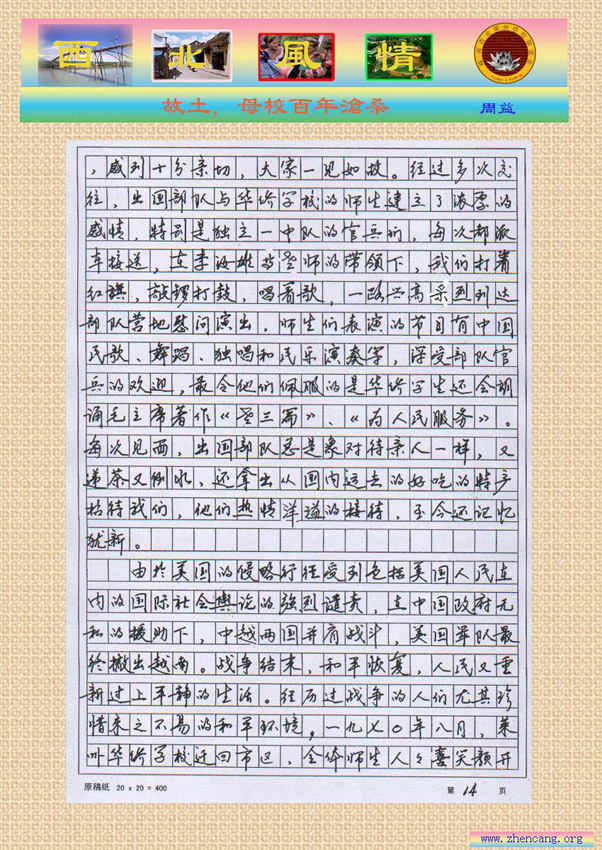 西北風情
故土，母校百年滄桑 周益
，感到十分亲切，大家一见如故。经过多次交
往，出国部队与华侨学校的师生建立了深厚的
感情，特别是独立一中队的官兵们，每次都派
车接送，在李海雄老师的带领下，我们打着
红旗，敲锣打鼓，唱着歌，一路兴高采烈到达
部队营地慰问演出，师生们表演的节目有中国
民歌、舞蹈、独唱和民乐演奏等，深受部队官
兵的欢迎，最令他们佩服的是华侨学生还会朗
诵毛主席著作《老三篇》、《为人民服务》。
每次见面，出国部队总是象对待亲人一样，又
递茶又倒水，还拿出从国内运去的好吃的特产
招待我们，他们热情洋溢的接待，至今还记忆
犹新。
由於美国的侵略行径受到包括美国人民在
内的国际社会舆论的强烈谴责，在中国政府无
私的援助下，中越两国并肩战斗，美国军队最
终撤出越南。战争结束，和平恢复，人民又重
新过上平静的生活。经历过战争的人们尤其珍
惜来之不易的和平环境，一九七〇年八月，莱
州华侨学校迁回市区，全体师生人々喜笑颜开
原稿纸 20 x 20 = 400 第 14 页
www.zhencang.org